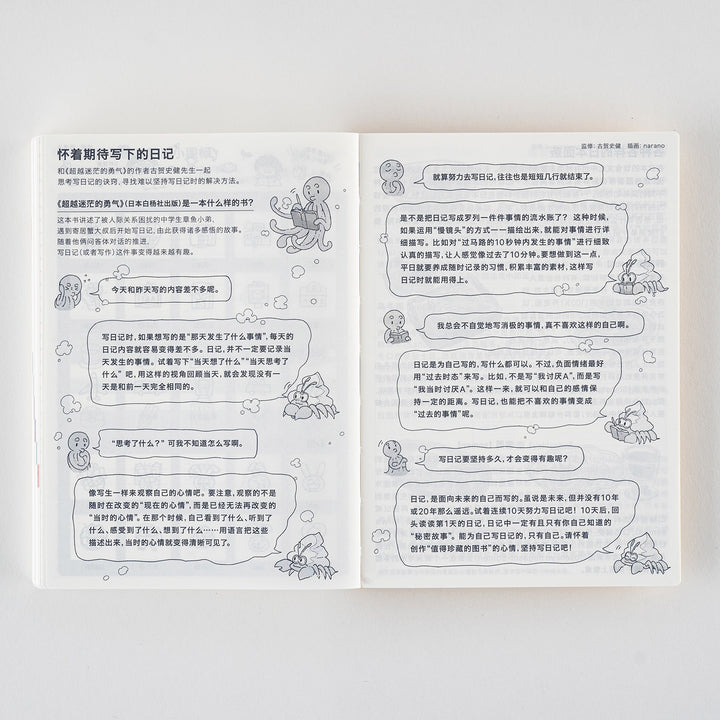 怀着期待写下的日记
和《超越迷茫的勇气》的作者古贺史健先生一起
思考写日记的诀窍,寻找难以坚持写日记时的解决方法。
《超越迷茫的勇气》(日本白杨社出版)是一本什么样的书?
这本书讲述了被人际关系困扰的中学生章鱼小弟,
遇到寄居蟹大叔后开始写日记,由此获得诸多感悟的故事。
随着他俩问答体对话的推进,
写日记(或者写作)这件事变得越来越有趣。
今天和昨天写的内容差不多呢。
写日记时,如果想写的是“那天发生了什么事情”,每天的
日记内容就容易变得差不多。日记,并不一定要记录当
天发生的事情。试着写下“当天想了什么”“当天思考了
什么”吧,用这样的视角回顾当天,就会发现没有一
天是和前一天完全相同的。
“思考了什么?”可我不知道怎么写啊。
像写生一样来观察自己的心情吧。要注意,观察的不是
随时在改变的“现在的心情”,而是已经无法再改变的
“当时的心情”。在那个时候,自己看到了什么、听到了
什么、感受到了什么、想到了什么……用语言把这些
描述出来,当时的心情就变得清晰可见了。
监修:古贺史健 插画:narano
就算努力去写日记,往往也是短短几行就结束了。
是不是把日记写成罗列一件件事情的流水账了? 这种时候,
如果运用“慢镜头”的方式一一描绘出来,就能对事情进行详
细描写。比如对“过马路的10秒钟内发生的事情”进行细致
认真的描写,让人感觉像过去了10分钟。要想做到这一点,
平日就要养成随时记录的习惯,积累丰富的素材,这样写
日记时就能用得上。
我总会不自觉地写消极的事情,真不喜欢这样的自己啊。
日记是为自己写的,写什么都可以。不过,负面情绪最好
用“过去时态”来写。比如,不是写“我讨厌A”,而是写
“我当时讨厌A”。这样一来,就可以和自己的感情保
持一定的距离。写日记,也能把不喜欢的事情变成
“过去的事情”呢。
写日记要坚持多久,才会变得有趣呢?
日记,是面向未来的自己而写的。虽说是未来,但并没有10年
或20年那么遥远。试着连续10天努力写日记吧!10天后,回
头读读第1天的日记,日记中一定有且只有你自己知道的
“秘密故事”。能为自己写日记的,只有自己。请怀着
创作“值得珍藏的图书”的心情,坚持写日记吧!